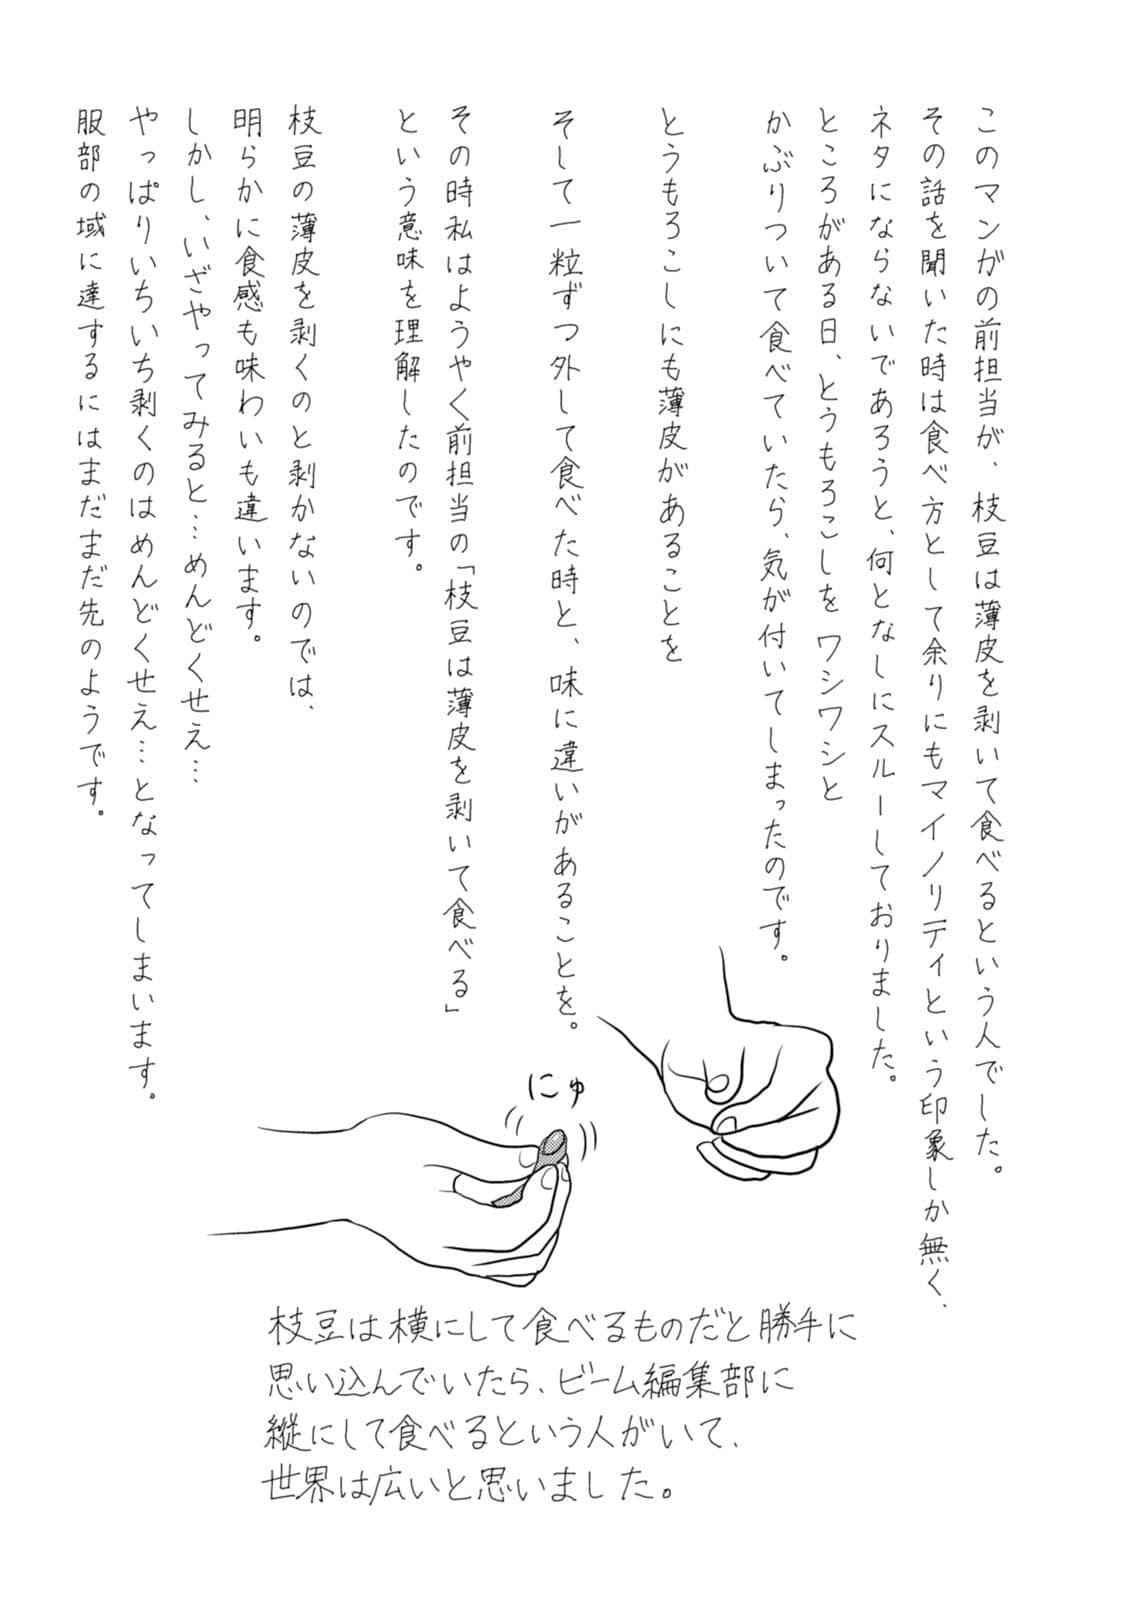 このマンガの前担当が、枝豆は薄皮を剥いて食べるという人でした。
その話を聞いた時は食べ方として余りにもマイノリティという印象しか無く、
ネタにならないであろうと、何となしにスルーしておりました。
ところがある日、とうもろこしをワシワシと
かぶりついて食べていたら、気が付いてしまったのです。
とうもろこしにも薄皮があることを
そして一粒ずつ外して食べた時と、味に違いがあることを。
その時私はようやく前担当の「枝豆は薄皮を剥いて食べる」
という意味を理解したのです。
枝豆の薄皮を剥くのと剥かないのでは、
明らかに食感も味わいも違います。
しかし、いざやってみると…めんどくせえ…
やっぱりいちいち剥くのはめんどくせえ…となってしまいます。
服部の域に達するにはまだまだ先のようです。
にゅ
枝豆は横にして食べるものだと勝手に
思い込んでいたら、ビーム編集部に
縦にして食べるという人がいて、
世界は広いと思いました。